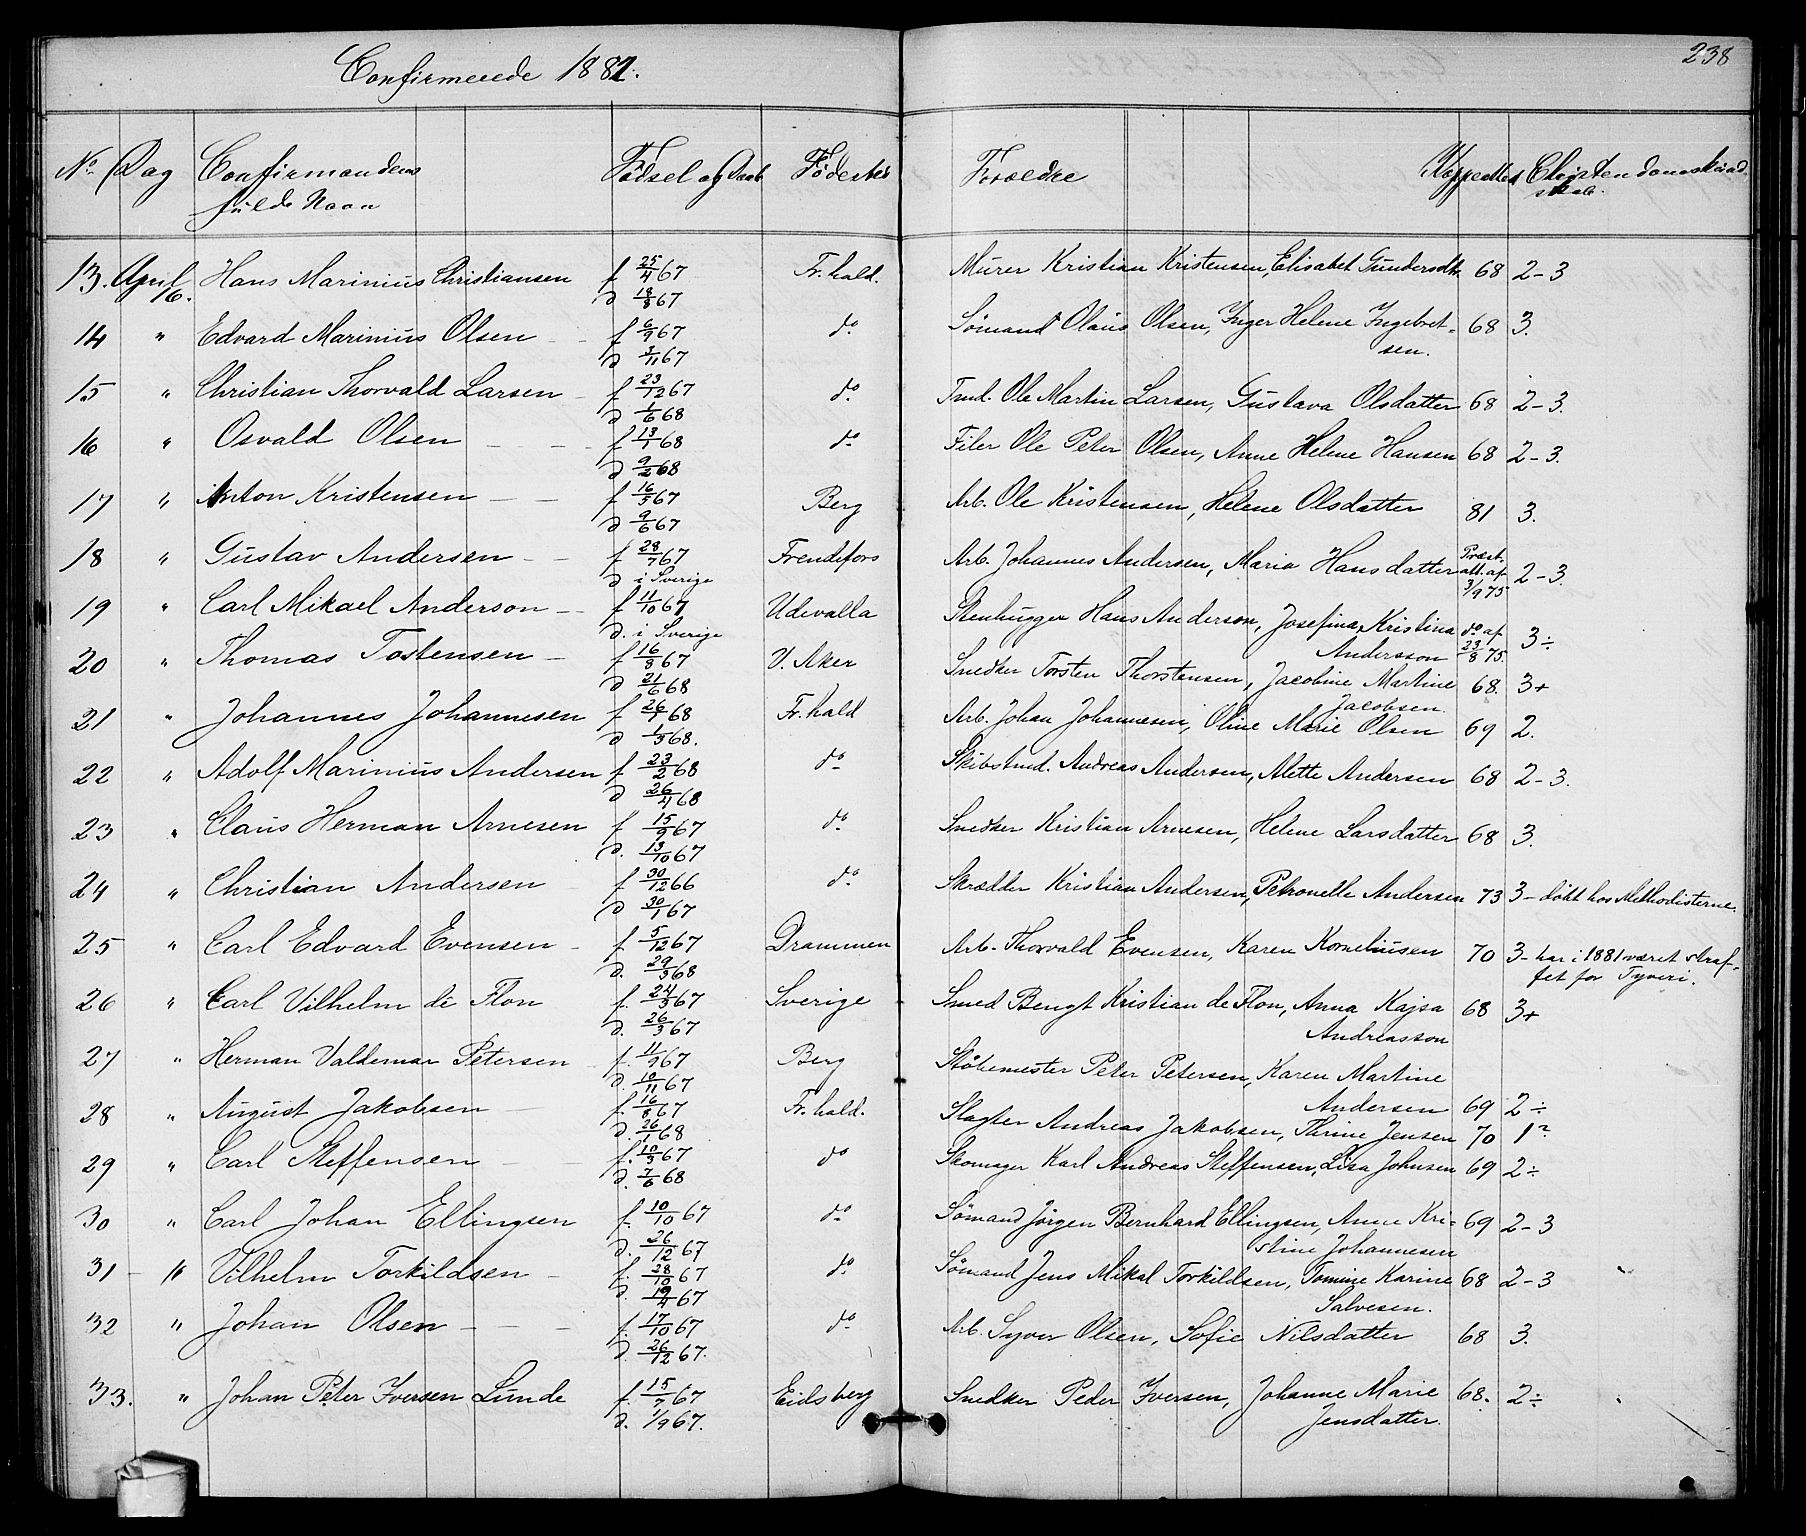 Confirmerede 1882.
238
No Dag Confirmandens fulde Navn Fødsel og Daab Fødested Forældre Christendomskundskab.
13. April 16. Hans Marinius Christiansen f 25/4 67 d 18/8 67 Fr.hald. Murer Kristian Kristensen, Elisabet Gundersdtr. 68 2-3
14 " Edvard Marinius Olsen f 6/9 67 d 3/11 67 do Sømand Olaus Olsen, Inger Helene Ingebretsen. 68 3.
15 " Christian Thorvald Larsen f 23/12 67 d 1/6 68 do Tmd. Ole Martin Larsen, Gustava Olsdatter 68 2-3.
16 " Osvald Olsen f 13/1 68 d 9/2 68 do Filer Ole Peter Olsen, Anne Helene Hansen 68 2-3.
17 " Anton Kristensen f 16/5 67 d 9/6 67 Berg Arb. Ole Kristensen, Helene Olsdatter 81 3.
18 " Gustav Andersen f 28/7 67 d i Sverige Frendefors Arb. Johannes Andersen, Maria Hansdatter Præst. att. af 3/9 75 2-3.
19 " Carl Mikael Anderson f 11/10 67 d. i Sverige Udevalla Stenhugger Hans Anderson, Josefina Kristina Andersson do af 23/8 75. 3÷
20 " Thomas Tostensen f 16/8 67 d 21/6 68 V. Aker Snedker Torsten Thorstensen, Jacobine Martine Jacobsen. 68. 3+
21 " Johannes Johannesen f 26/1 68 d 1/5 68. Fr.hald Arb. Johan Johannesen, Oline Marie Olsen 69 2.
22 " Adolf Marinius Andersen f 23/2 68 d 26/4 68 do Skibstmd. Andreas Andersen, Mette Andersen 68 2-3.
23 " Claus Herman Arnesen f 15/9 67 d. 13/10 67 do Snedker Kristian Arnesen, Helene Larsdatter 68 3.
24 " Christian Andersen f 30/12 66 d 30/1 67 do Skrædder Kristian Andersen, Petronelle Andersen 73 3- døbt hos Methodisterne.
25 " Carl Edvard Evensen f 5/12 67 d. 29/3 68 Drammen Arb. Thorvald Evensen, Karen Korneliusen 70 3- har i 1881 været straffet for Tyveri.
26 " Carl Vilhelm de Flon f. 24/3 67 d. 26/3 67 Sverige Smed Bengt Kristian de Flon, Anna Kajsa Andreasson 68 3+
27 " Herman Valdemar Petersen f. 11/9 67 d. 10/11 67 Berg Støbemester Peter Petersen, Karen Martine Andersen 69 2÷
28 " August Jakobsen f. 16/8 67 d. 26/1 68 Fr.hald. Slagter Andreas Jakobsen, Thrine Jensen 70 1?
29 " Carl Steffensen f. 10/3 67 d. 7/6 68 do Skomager Karl Andreas Steffensen, Lisa Johnsen 69 2÷
30 " Carl Johan Ellingsen f. 10/10 67 d. 26/12 67 do Sømand Jørgen Bernhard Ellingsen, Anne Kristine Johannesen 69 2-3
31 " Vilhelm Torkildsen f. 28/10 67 d. 19/4 67 do Sømand Jens Mikal Torkildsen, Tomine Karine Salvesen. 68 2-3
32 " Johan Olsen f. 17/10 67 d. 26/12 67. do Arb. Syver Olsen, Sofie Nilsdatter 68 3.
33. " Johan Peter Iversen Lunde f. 15/7 67 d. 1/9 67. Eidsberg Snedker Peder Iversen, Johanne Marie Jensdatter. 68. 2÷